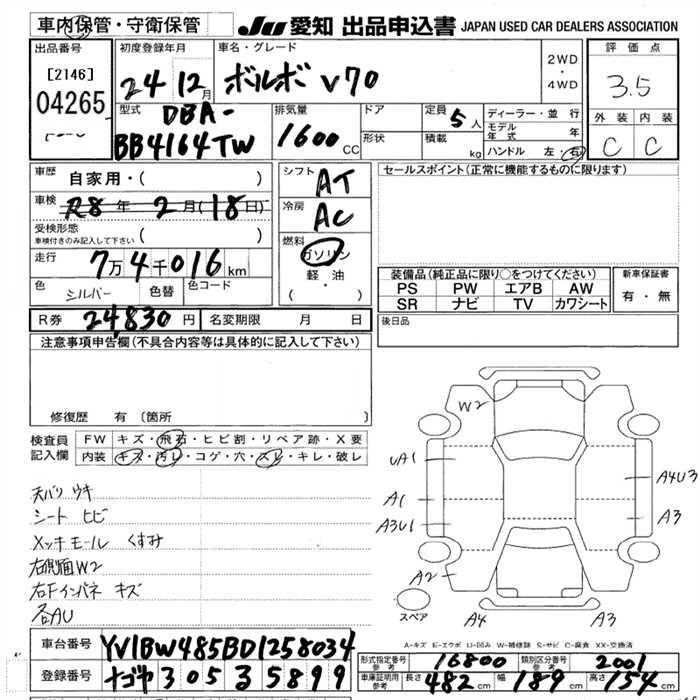 車内保管・守衛保管
JU 愛知 出品申込書 JAPAN USED CAR DEALERS ASSOCIATION
出品番号
[2146]
04265
初度登録年月
24 12月
車名・グレード
ボルボ V70
2WD
・
4WD
評価点
3.5
型式
DBA-
BB4164TW
排気量
1600cc
ドア
形状
定員
5人
積載
kg
ディーラー・並行
モデル年式 年
ハンドル 左・右
外装 内装
C C
車歴
自家用・( )
車検
R8年 2月(18日)
受検形態
車検付きのみ記入して下さい ( )
走行
7万4千016km
色
シルバー
色替
色コード
シフト
AT
冷房
AC
燃料
ガソリン
軽・油
( ・ )
セールスポイント(正常に機能するものに限ります)
装備品(純正品に限り○をつけてください)
PS PW エアB AW
SR ナビ TV カワシート
新車保証書
有・無
R券 24,830円
名変期限 月 日
後日品
注意事項申告欄(不具合内容等は具体的に記入して下さい)
修復歴 有(箇所
検査員
記入欄
FW キズ・飛石・ヒビ割・リペア跡・X要
内装 キズ・汚レ・コゲ・穴・スレ・キレ・破レ
天バリ ウキ
シート ヒビ
メッキモール くすみ
右側面W2
右Fインパネ キズ
各AU
W2
UA1
A1
A3U1
A2
A4U3
A3
スペア
A4
A3
A-キズ E-エクボ U-凹み W-補修跡 S-サビ C-腐食 XX-交換済
車台番号 YV1BW485BD1258034
登録番号 ナゴヤ 305 ス 5899
形式指定番号
参考
16800
類別区分番号
参考
2001
車庫証明用
参考
長さ 482cm 幅 189cm 高さ 154cm